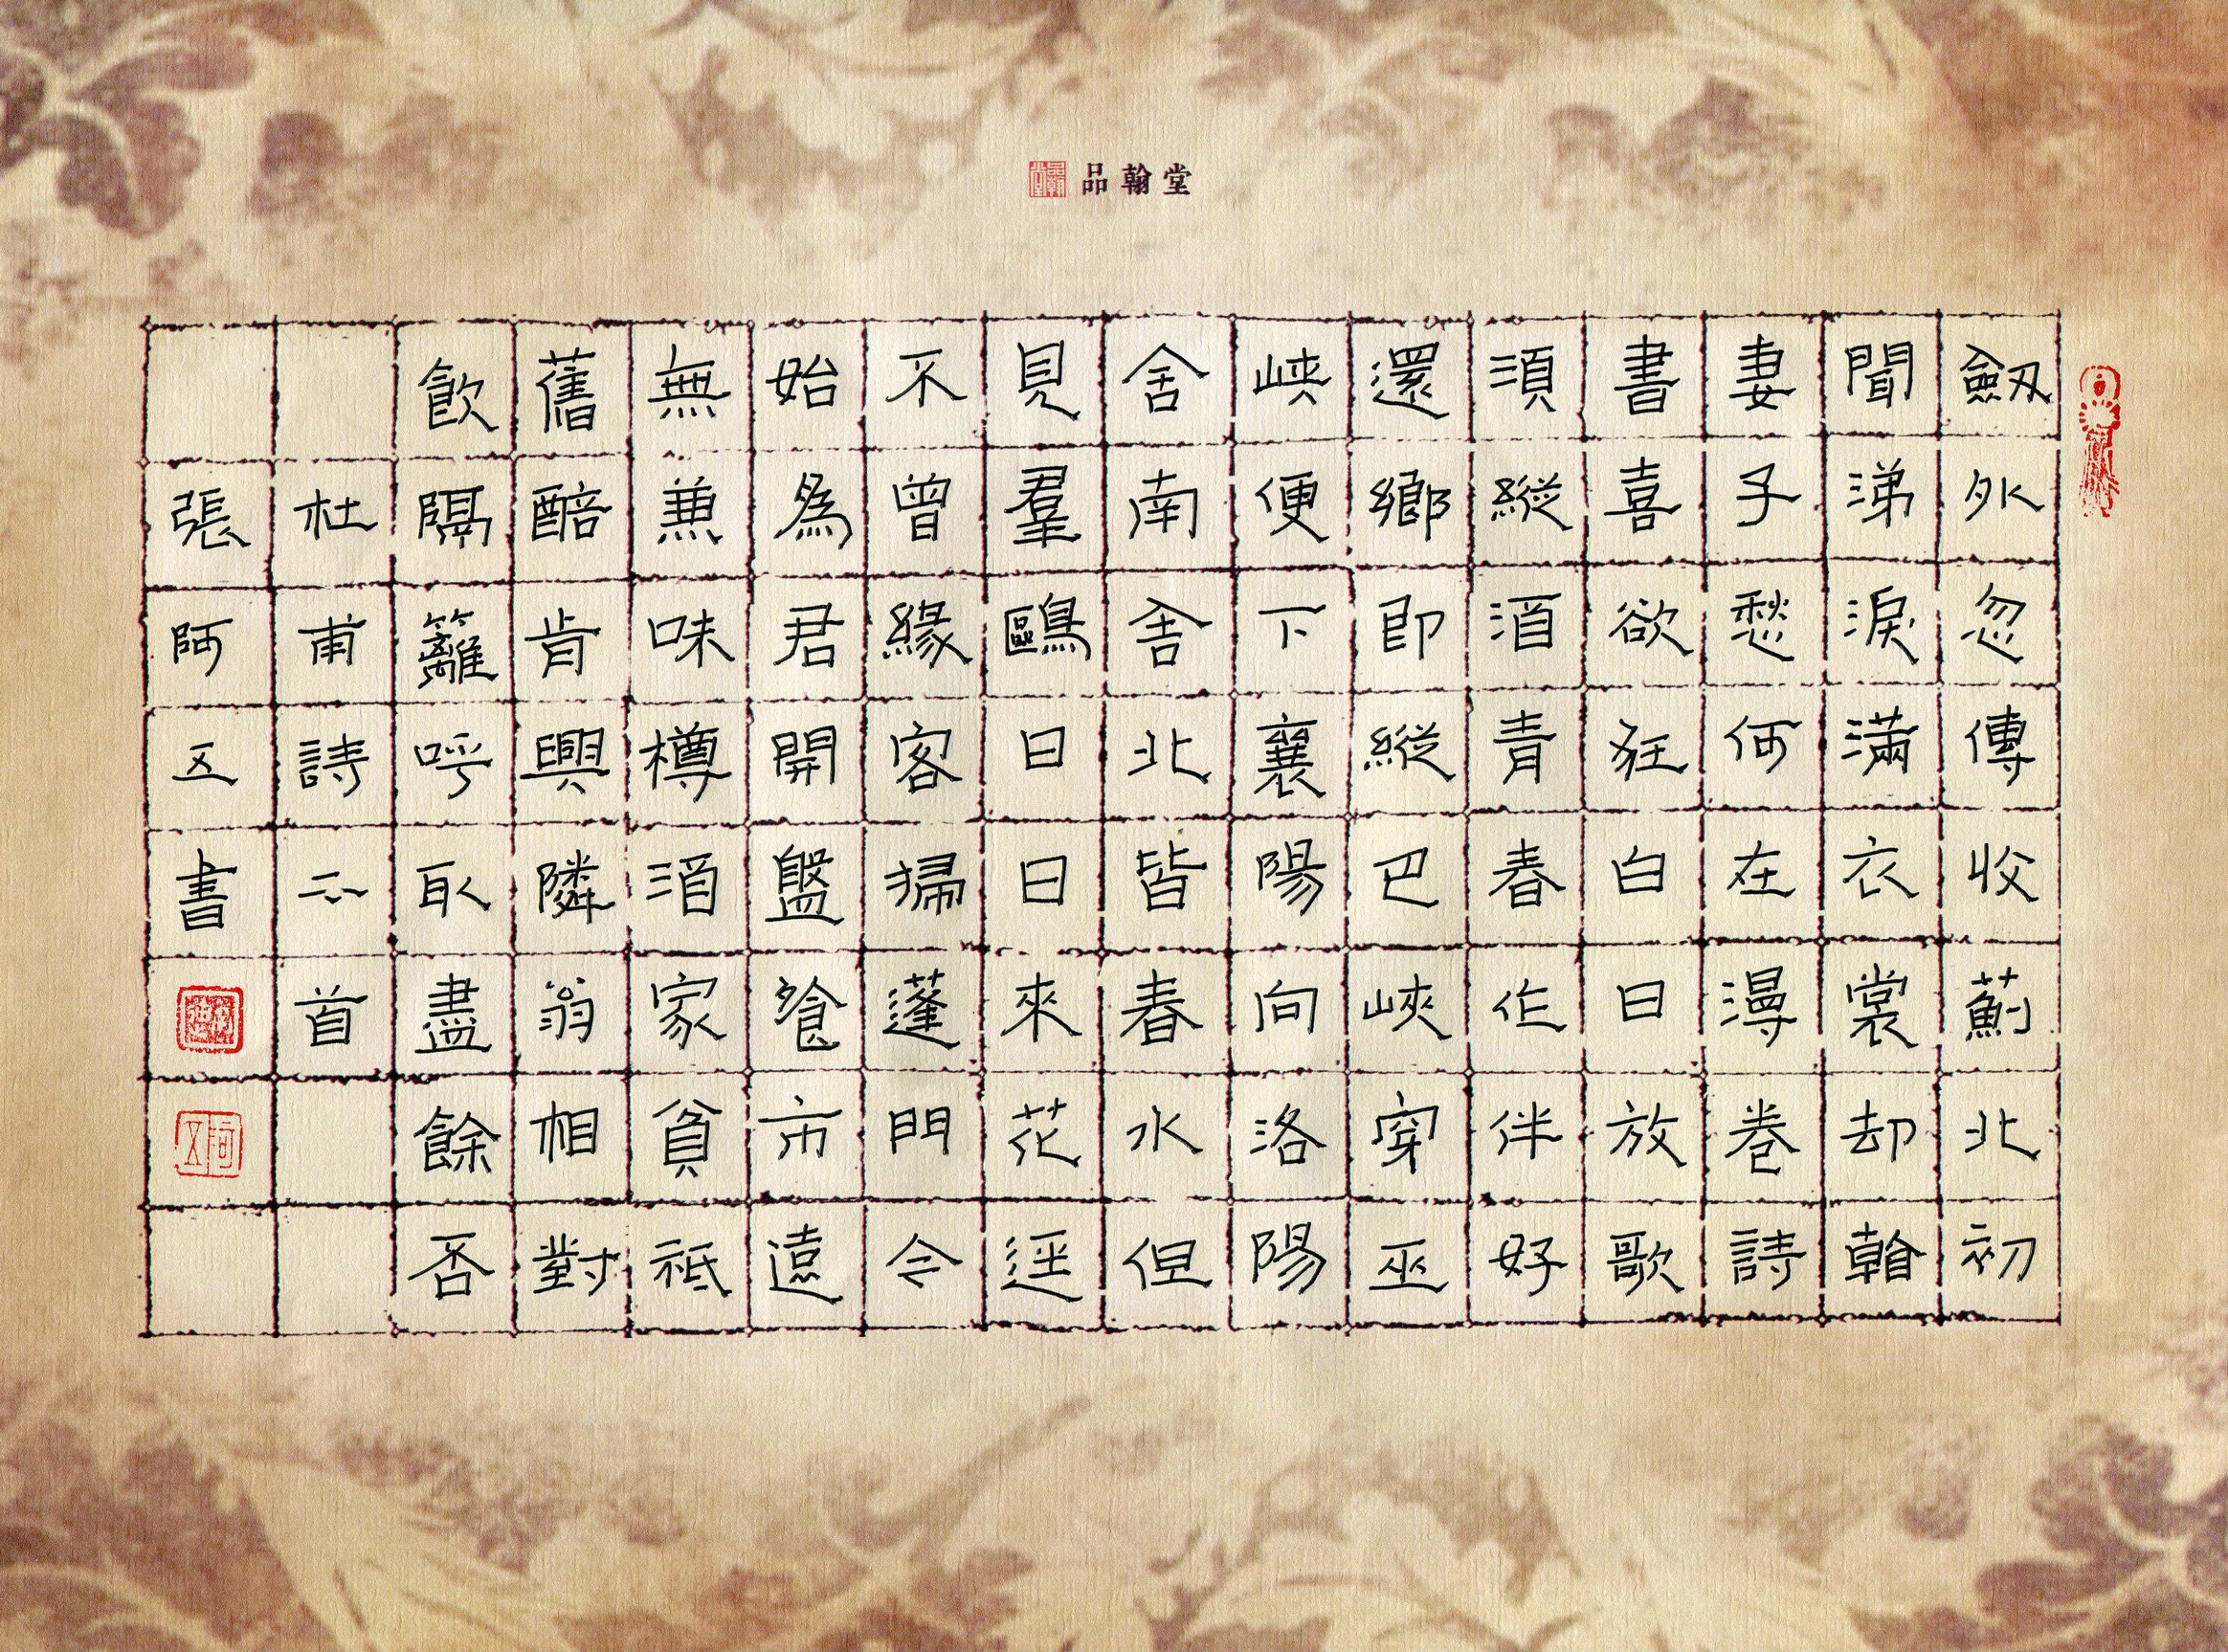 品翰堂
劔外忽傳收薊北初
聞涕淚滿衣裳却看
妻子愁何在漫卷詩
書喜欲狂白日放歌
須縱酒青春作伴好
還鄉即縱巴峽穿巫
峽便下襄陽向洛陽
舍南舍北皆春水但
見羣鷗日日來花逕
不曾緣客掃蓬門今
始為君開盤飧市遠
無兼味樽酒家貧祗
舊醅肯與隣翁相對
飲隔籬呼取盡餘否
杜甫詩二首
張阿五書
阿五